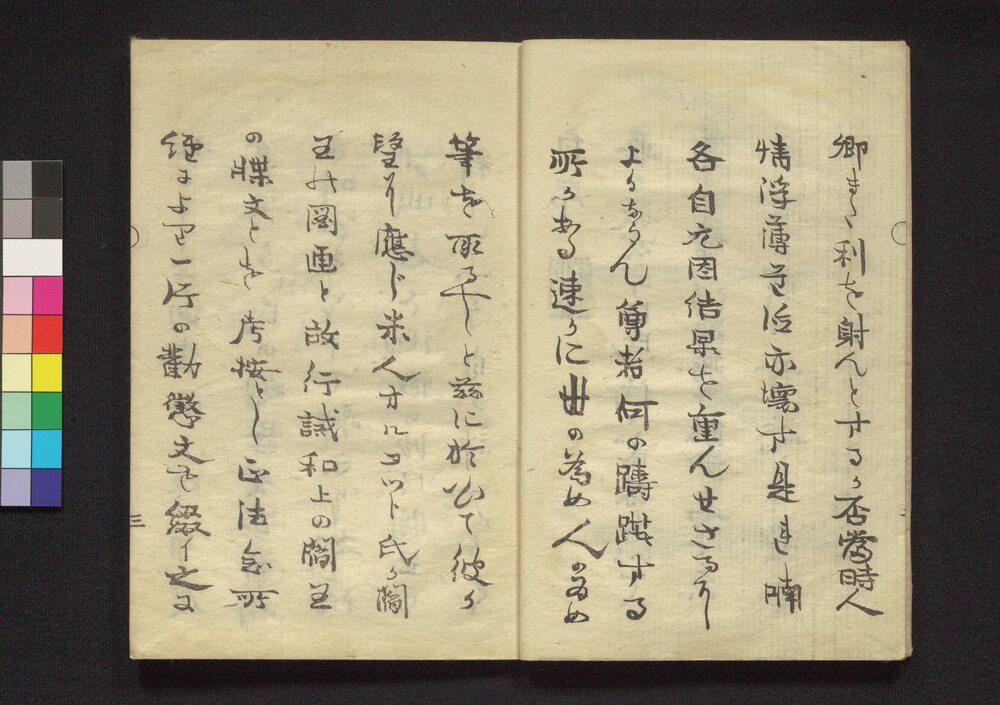 卿まゝ利を射んとするか否當時人
情浮薄道徳亦壊す是れ晴
各自充因結果を重んせさるに
よるならん尊者何の躊躇する
所かある速かに世の為め人の為め
筆を取るへしと茲に於いて彼か
望に應じ米人オルコット氏か閻
王の図画と故行誡和上の閻王
の牒文とを考按し正法念所
經により一片の勸懲文を綴り之に
三